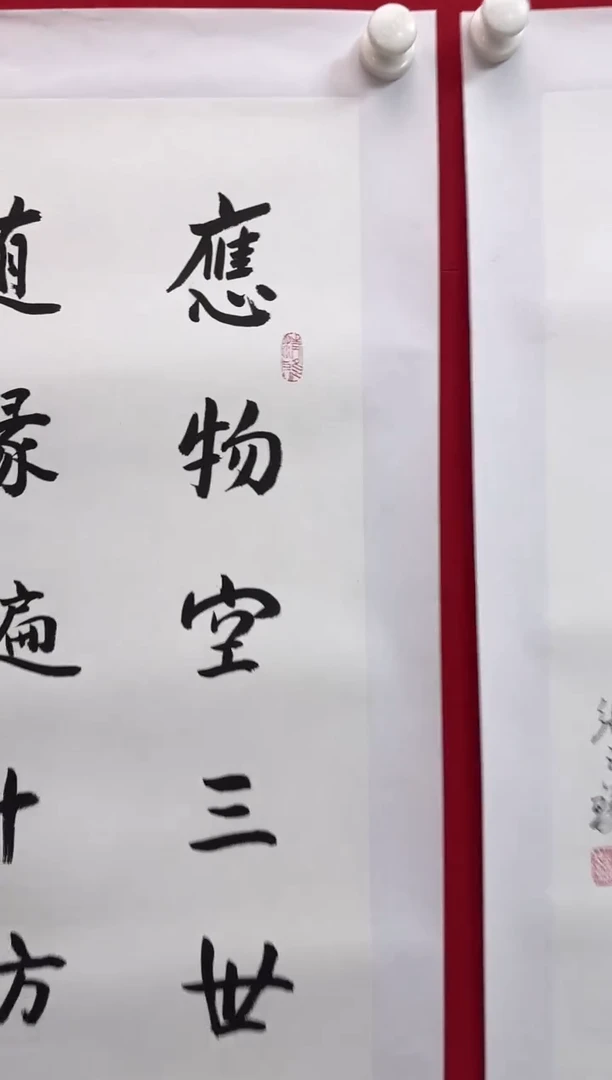 應物空三世
随缘遍十方